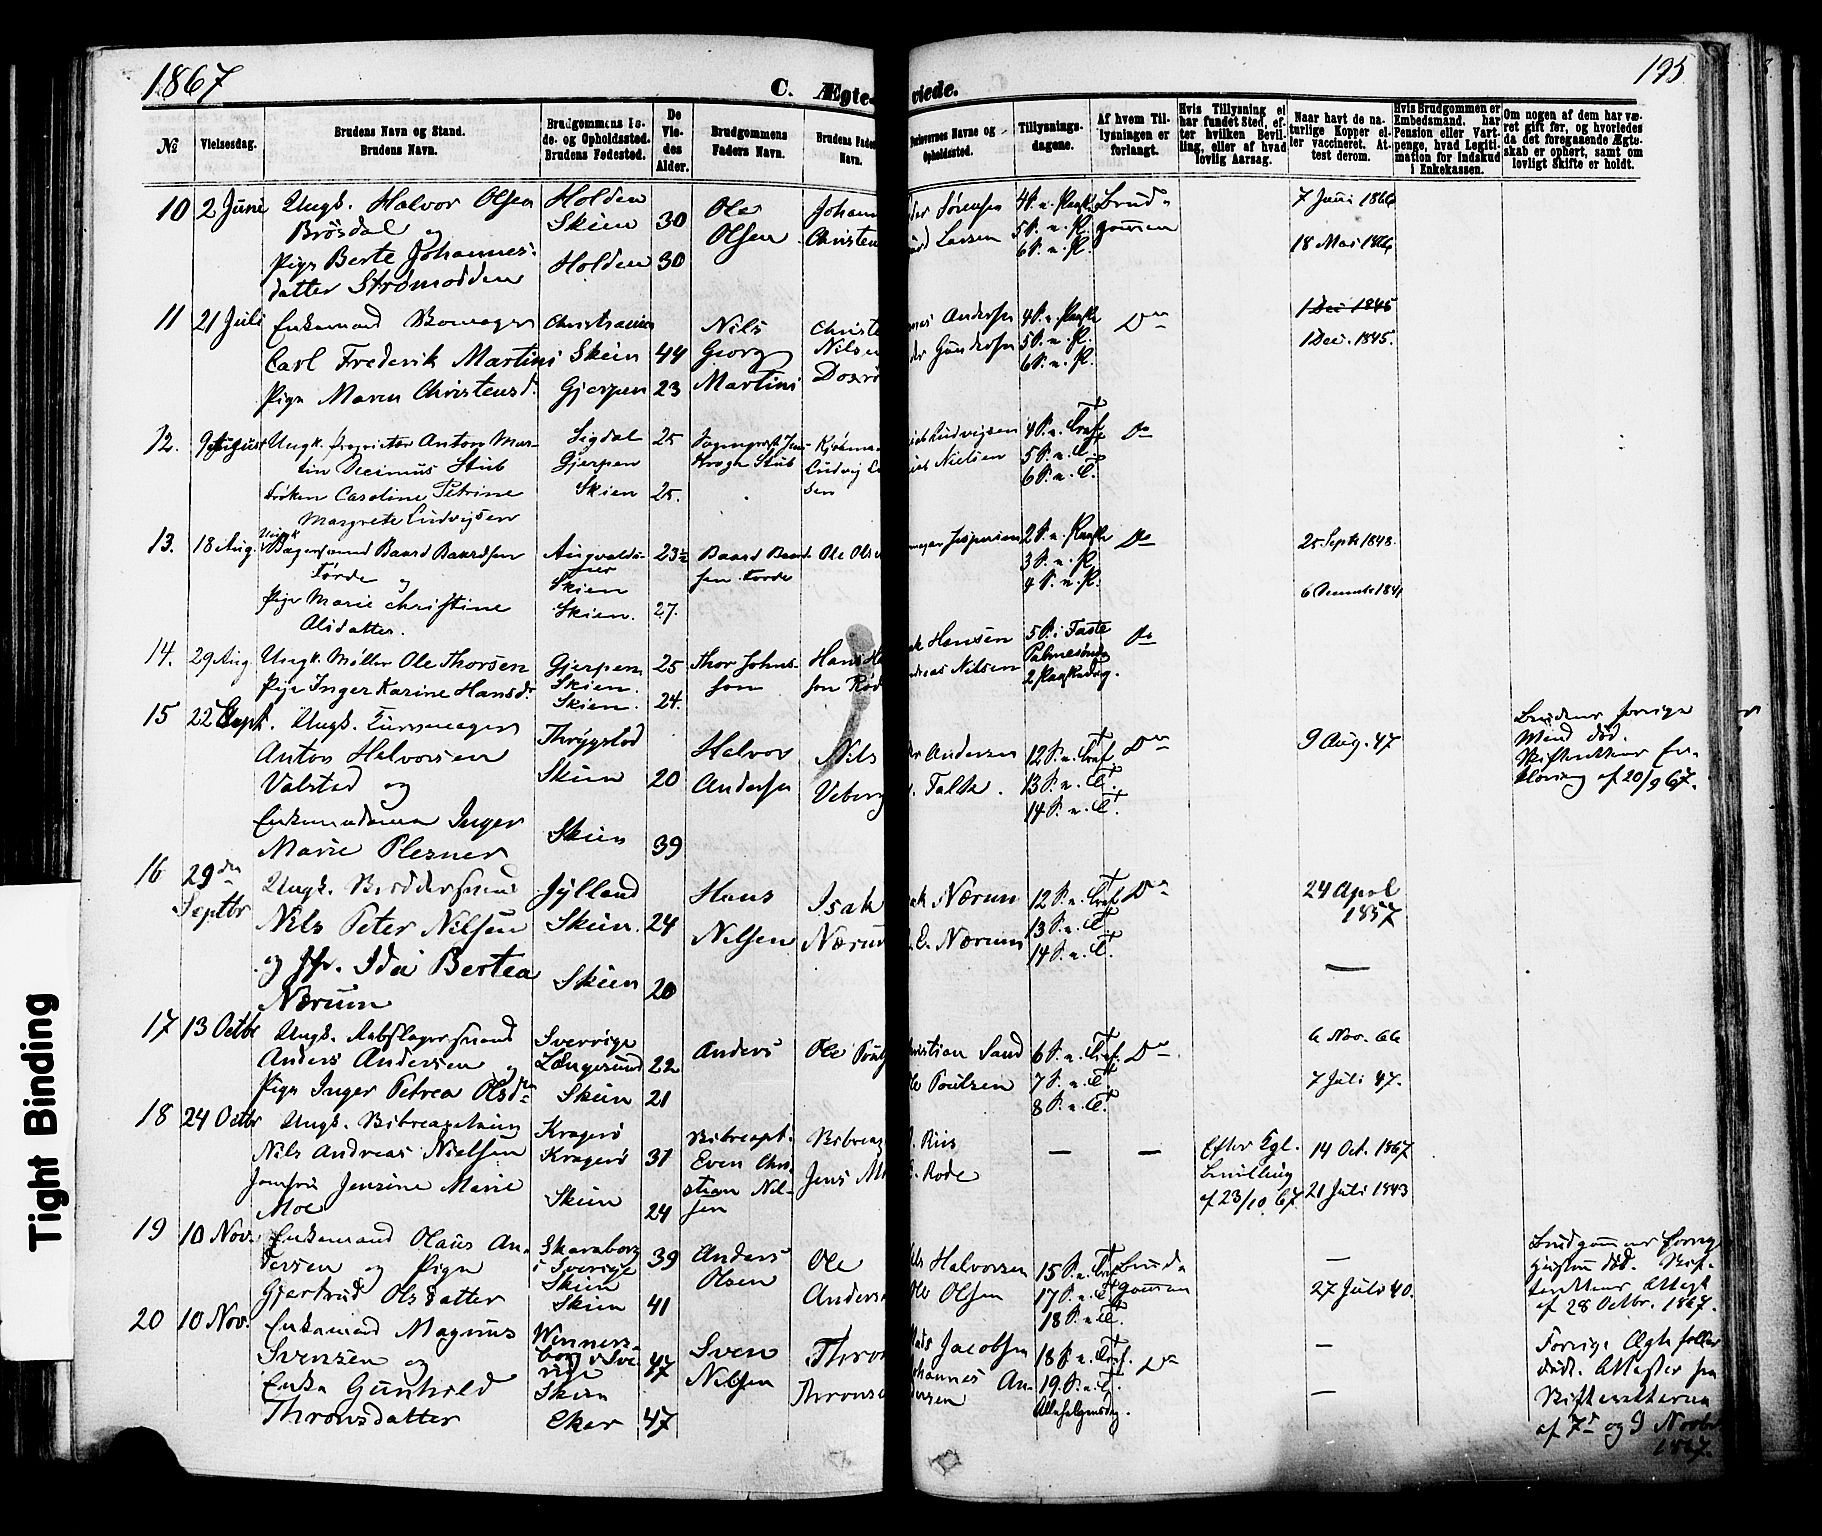 1867
C. Ægte- viede.
195
№
Vielsesdag.
Brudens Navn og Stand.
Brudens Navn.
Brudgommens Fø-
de- og Opholdssted.
Brudens Fødested.
De
Vie-
des
Alder.
Brudgommens
Faders Navn.
Brudens Fader
Navn.
Forlovernes Navne og
Opholdssted.
Tillysnings-
dagene.
Af hvem Til-
lysningen er
forlangt.
Hvis Tillysning ei
har fundet Sted, ef-
ter hvilken Bevil-
ling, eller af hvad
lovlig Aarsag.
Naar havt de na-
turlige Kopper el-
ler vaccineret. At-
test derom.
Hvis Brudgommen er
Embedsmand, har
Pension eller Vart-
penge, hvad Legiti-
mation for Indskud
i Enkekassen.
Om nogen af dem har væ-
ret gift før, og hvorledes
da det foregaaende Ægte-
skab er ophørt, samt om
lovligt Skifte er holdt.
10 2 Juni Ungk. Halvor Olsen
Brösdal og
Pige Berte Johannes-
datter Strömodden
Holden
Skien 30
Holden 30
Ole
Olsen
Johann
Christen
Sörensen
Larsen
4 S. e. Paaske
5 S. e. P.
6 S. e. P.
Brud-
gommen
7 Juni 1866
18 Mai 1866
11 21 Juli Enkemand
Carl Frederik Martini
Pige Maren Christensd.
Christiania
Skien 44
Gjerpen 23
Nils
Georg
Martini
Christe
Nilsen
Andersen
Gundersen
4 S. e. Paaske
5 S. e. P.
6 S. e. P.
Do
1 Dec 1845
1 Dec. 1845.
12. 9 August Ungk. Proprietær Anton Mar-
tin Decimus Stub
Frøken Caroline Petrine
Margrete Ludvigsen
Sigdal 25
Gjerpen
Skien 25.
Sogneprest
Krogh Stub
Kjøbma-
Ludvig L
sen
Ludvigsen
Nielsen
4 S. e. Tref.
5 S. e. T.
6 S. e. T.
Do
13. 18 Aug. Ungk
Bagersvend Baard Baardsen
Førde og
Pige Marie Christine
Olsdatter.
Skien
Skien. 27.
23½
Baard Baard-
sen Førde
Ole Ols
Jespersen
2 S. e. Paaske
3 S. e. P.
4 S. e. P.
Do
25 Sept 1848.
6 December 1841
14. 29 Aug. Ungk. Møller Ole Thorsen
Pige Inger Karine Hansd.
Gjerpen 25
Skien.
Skien. 24.
Thor Johns-
sen
Hans Ha
sen Rød
Hansen
Andreas Nilsen
5 S. i Faste
Palmesöndag
2 Paaskedag.
Do
15 22 Sept. Ungk.
Anton Halvorsen
Valstad og
Enkemadame Inger
Marie Plesner
Thrygstad
Skien 20
Skien 39
Halvor
Andersen
Nils
Veberg
Andersen
Falck.
12 S. e. Tref.
13 S. e. T.
14 S. e. T.
Do
9 Aug. 47
Brudens forrige
Mand död.
Skifterettens Er-
klæring af 20/9 67.
16 29de
Septbr
Ungk.
Nils Peter Nilsen
og Jfr. Ida Bertea
Nærum
Jylland
Skien. 24
Skien 20
Hans
Nilsen
Isak
Nærum
Nærum
E. Nærum
12 S. e. Tref.
13 S. e. T.
14 S. e. T.
Do
24 April
1857
—
17 13 Octbr Ungk. Rebslagersvend
Anders Andersen og
Pige Inger Petrea Olsdr
Sverrige
Langesund 22
Skien 21
Anders
Ole Poul
Christian Sand
Ole Poulsen
6 S. e. Tref.
7 S. e. T.
8 S. e. T.
Do
6 Nov. 66
7 Juli 47.
18 24 Octbr Ungk. Skibscaptein
Nils Andreas Nielsen
Jomfru Jensine Marie
Moe
Kragerö
Kragerö 31
Skien 24
Skibscapt.
Even Chri-
stian Niel-
sen
Skibscap
Jens M
Riis
Rode
—
—
Efter Kgl.
Bevilling
af 23/10 67.
14 Oct. 1867
21 Juli 1843
19 10 Nov. Enkemand Olaus An-
dersen og Pige
Gjertrud Olsdatter
Skaraborg
i Sverige 39
Skien
Skien 41
Anders
Olsen
Ole
Anders
Halvorsen
Ole Olsen
15 S. e. Tref
17 S. e. T.
18 S. e. T.
Brud-
gommen
—
27 Juli 40.
Brudgommens forrige
Hustru död. Skif-
terettens Attest
af 28 Octbr. 1867.
20 10 Nov. Enkemand Magnus
Svensen og
Enke Gunhild
Thronsdatter
Wenners-
borg i Sve-
rige 47
Skien
Eker 47
Sven
Nilsen
Thron
Throns
Mads Jacobsen
Johannes An-
dersen
18 S. e. Tref.
19. S. e. T.
Allehelgensdag.
Do
—
—
Forrige Ægtefæller
döde. Attester fra
Skifteretterne
af 7de og 9 Novbr
1867.
Tight Binding